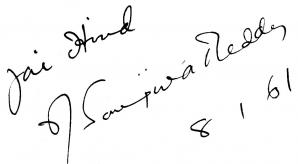 Jai Hind
N Sanjiva Reddy
8 1 61